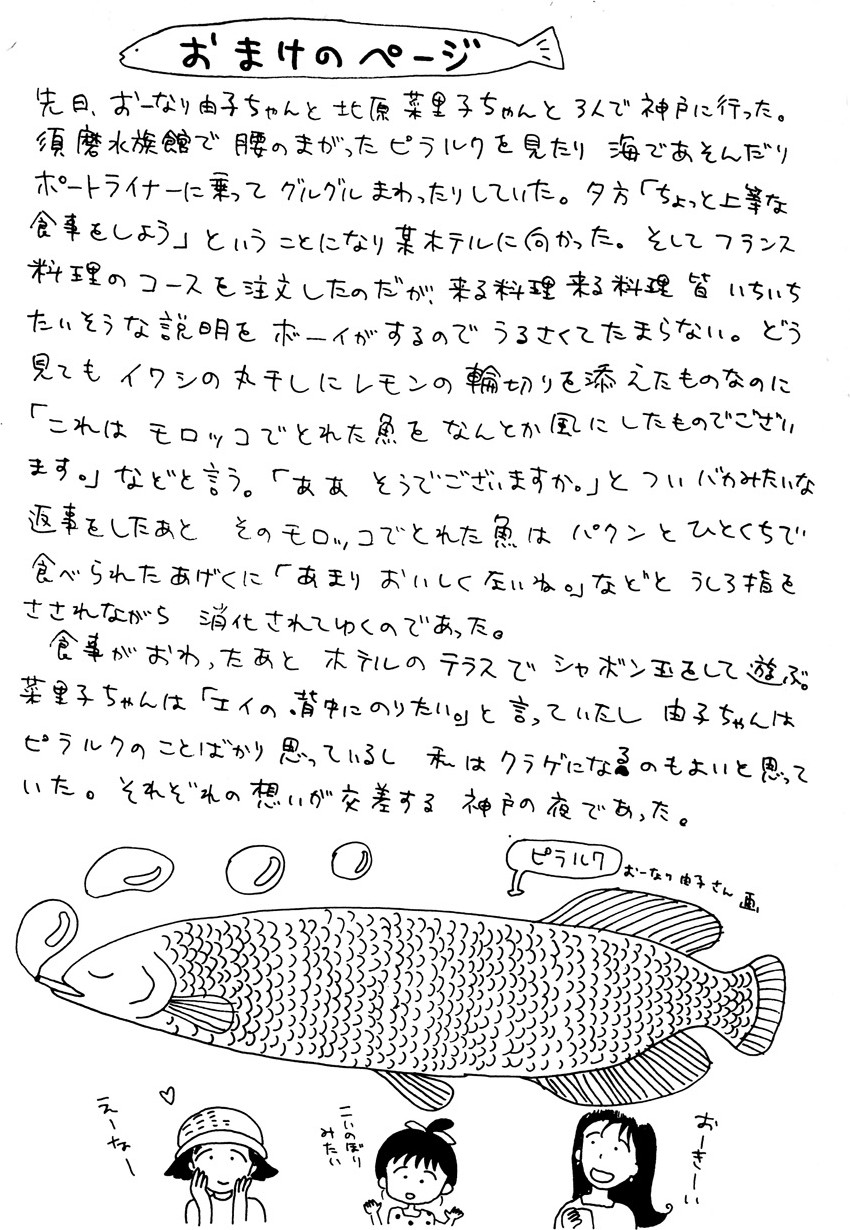 おまけのページ
先日、おーなり由子ちゃんと 北原 菜里子ちゃんと 3人で 神戸に行った。
須磨水族館で 腰のまがった ピラルクを 見たり 海であそんだり
ポートライナーに乗って グルグル まわったりしていた。夕方「ちょっと上等な
食事をしよう」ということになり 某ホテルに 向かった。そして フランス
料理の コースを 注文したのだが、来る料理 来る料理 皆 いちいち
たいそうな 説明を ボーイがするので うるさくてたまらない。どう
見ても イワシの 丸干しに レモンの 輪切りを 添えたものなのに
「これは モロッコでとれた 魚を なんとか風に したものでござい
ます。」などと言う。「ああ そうでございますか。」と つい バカみたいな
返事をしたあと そのモロッコでとれた 魚は パクンと ひとくちで
食べられたあげくに「あまり おいしくないね。」などと うしろ指を
さされながら 消化されてゆくのであった。
食事が おわったあと ホテルの テラスで シャボン玉をして 遊ぶ。
菜里子ちゃんは「エイの 背中に のりたい。」と 言っていたし 由子ちゃんは
ピラルクの ことばかり 思っているし 私は クラゲになるのもよいと思って
いた。それぞれの 想いが 交差する 神戸の 夜であった。
ピラルク
おーなり由子さん 画
えーなー
こいのぼり
みたい
おーきーい